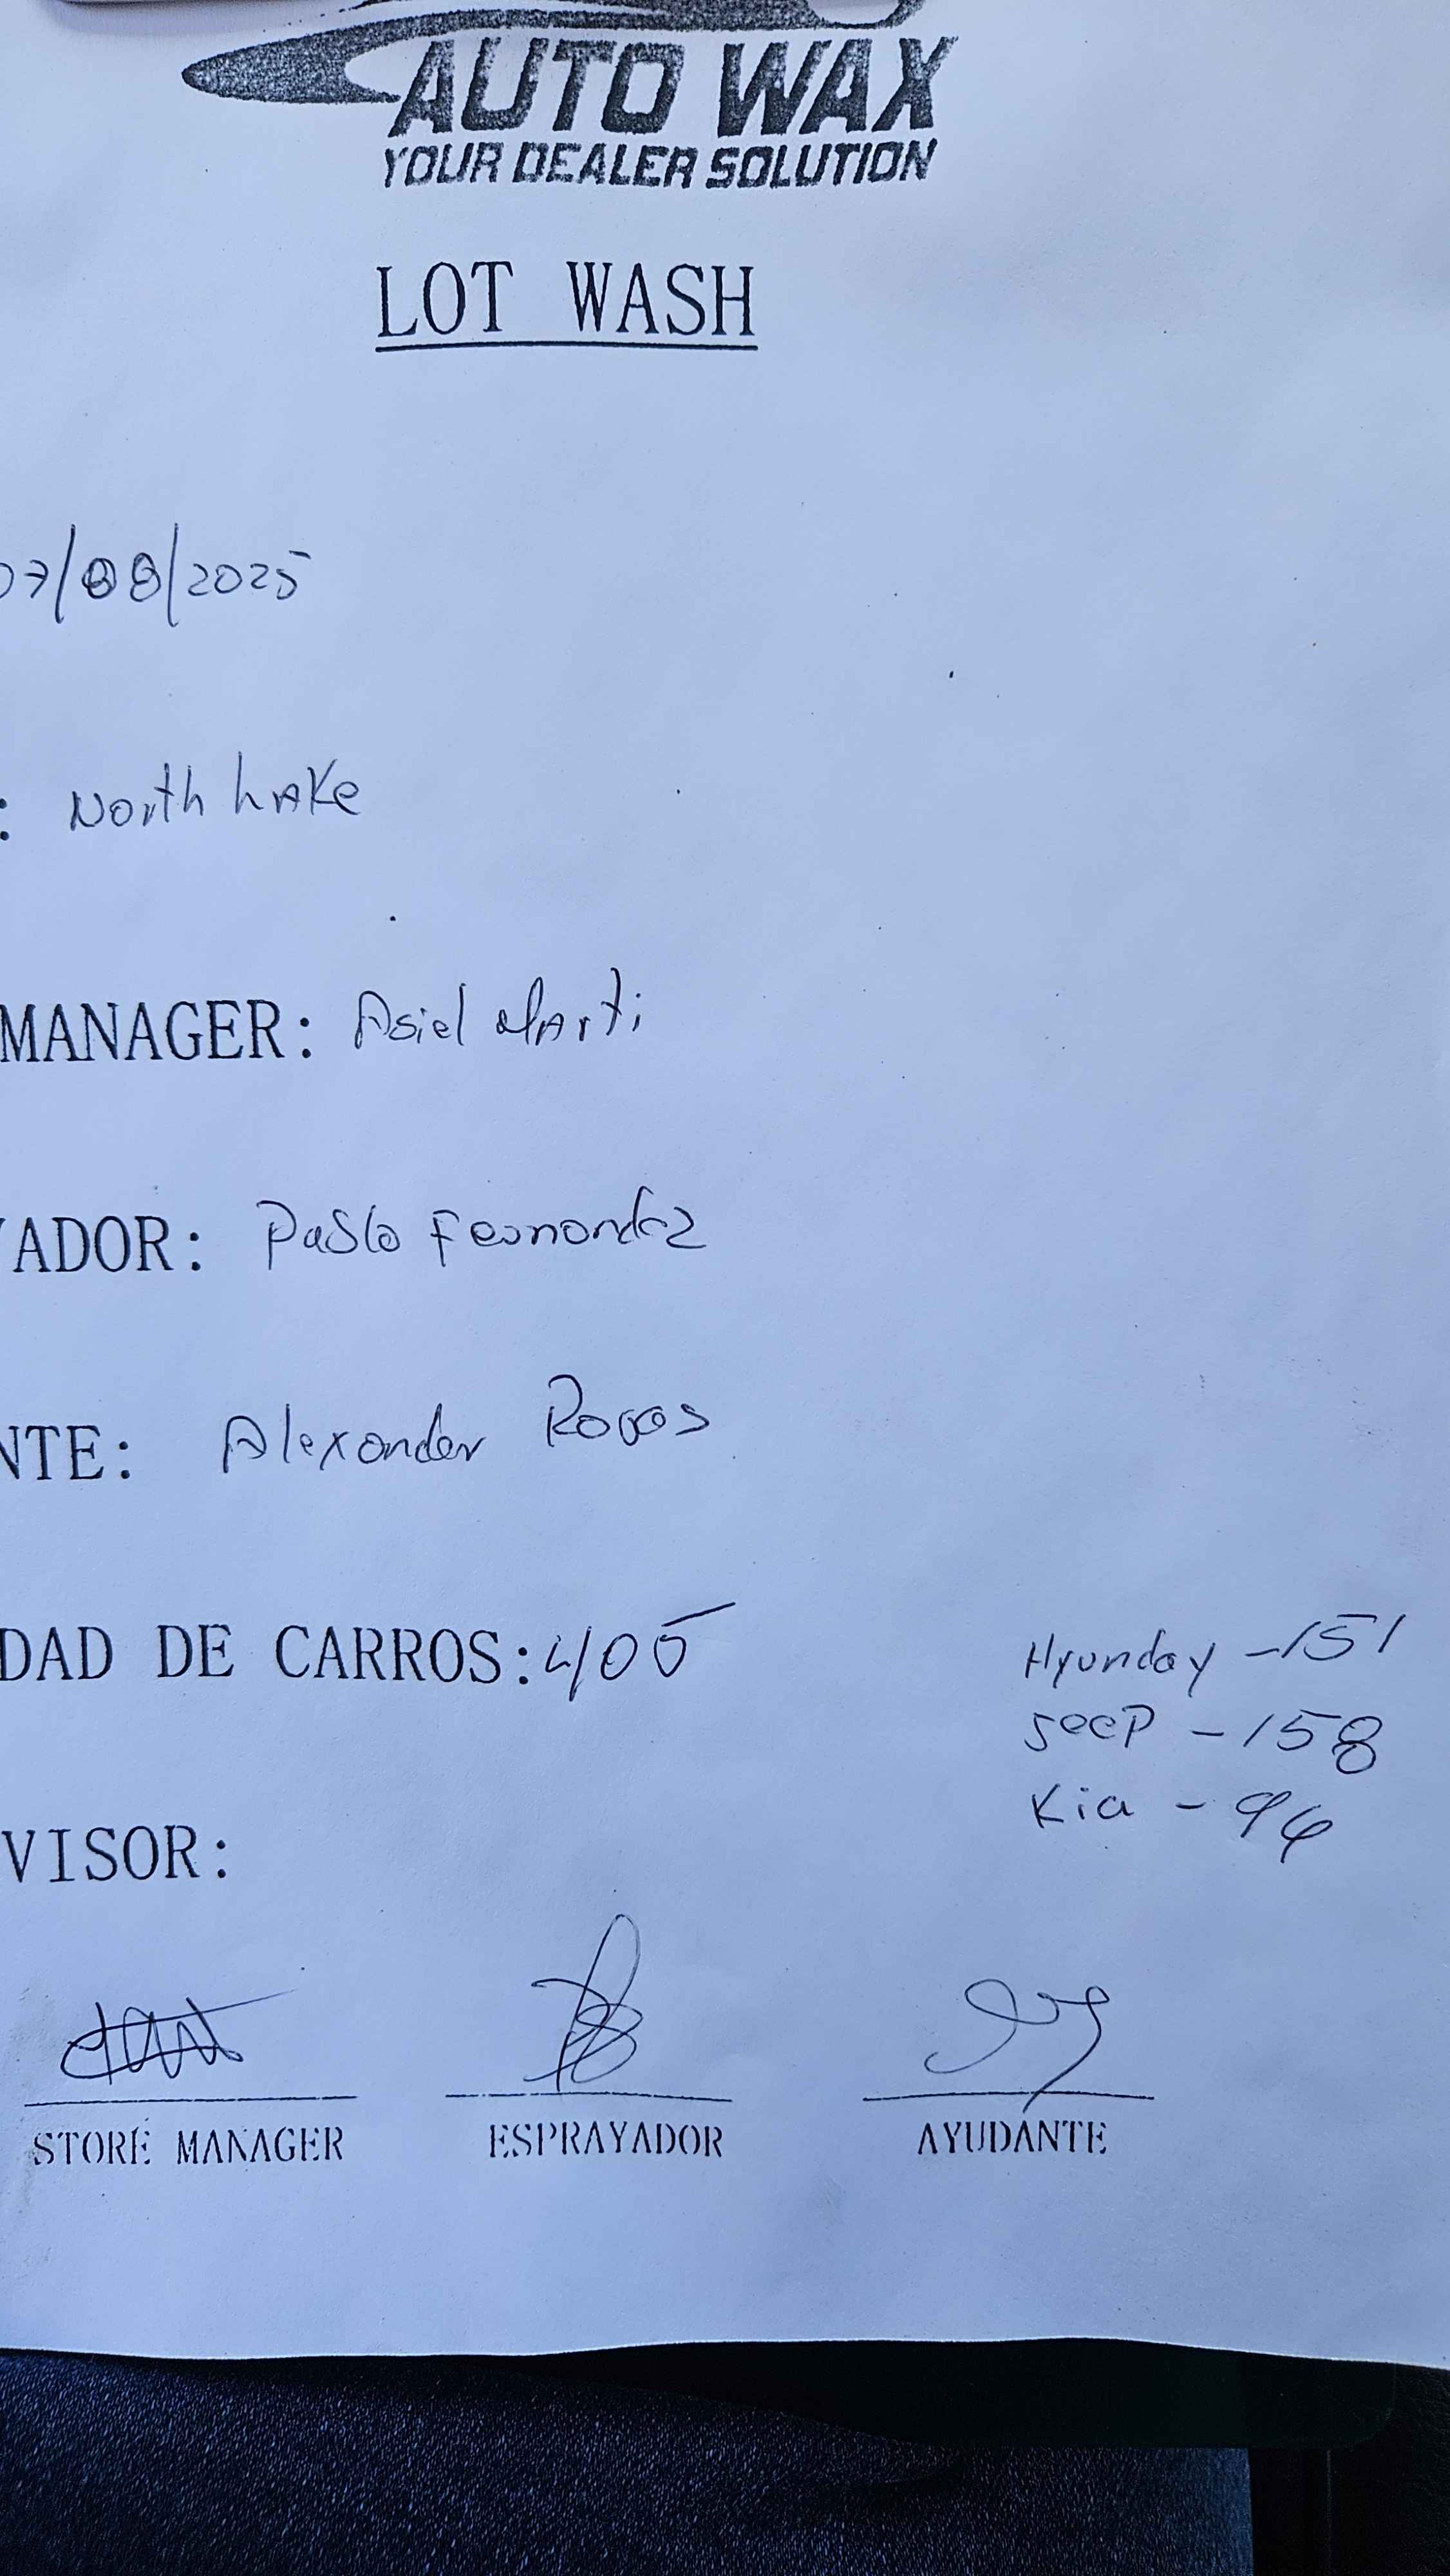 AUTO WAX
YOUR DEALER SOLUTION
LOT WASH
07/08/2025
: North Lake
MANAGER: Asiel Marti
YADOR: Pablo Fernandez
NTE: Alexander
DAD DE CARROS: 405
Hyunday - 151
Jeep - 158
Kia - 96
VISOR:
STORE MANAGER ESPRAYADOR AYUDANTE